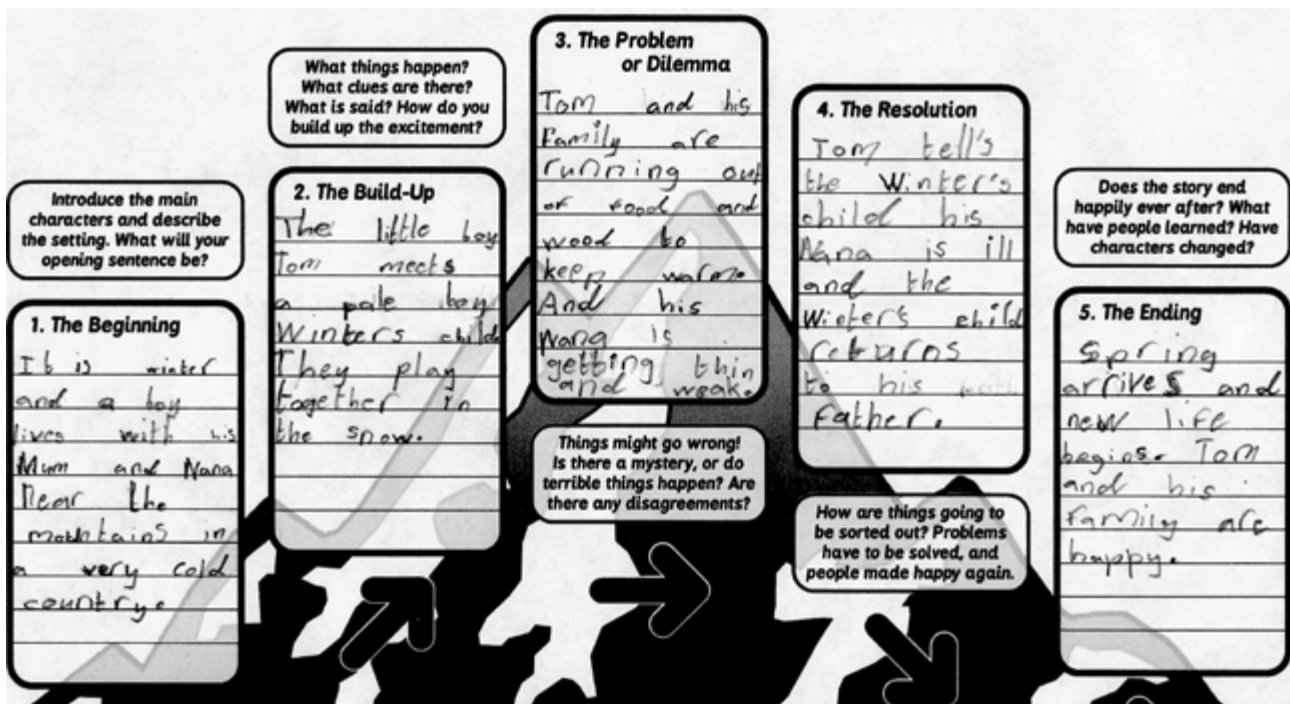 Introduce the main
characters and describe
the setting. What will your
opening sentence be?
1. The Beginning
It is winter
and a boy
lives with his
Mum and Nana
Near the
mountains in
a very cold
country.
What things happen?
What clues are there?
What is said? How do you
build up the excitement?
2. The Build-Up
The little boy
Tom meets
a pale boy
Winters child
They play
together in
the snow.
3. The Problem
or Dilemma
Tom and his
Family are
running out
of food and
wood to
keep warm.
And his
nana is
getting thin
and weak.
Things might go wrong!
Is there a mystery, or do
terrible things happen? Are
there any disagreements?
4. The Resolution
Tom tell's
the Winter's
child his
Nana is ill
and the
Winter's child
returns
to his
Father.
How are things going to
be sorted out? Problems
have to be solved, and
people made happy again.
Does the story end
happily ever after? What
have people learned? Have
characters changed?
5. The Ending
Spring
arrives and
new life
begins. Tom
and his
Family are
happy.